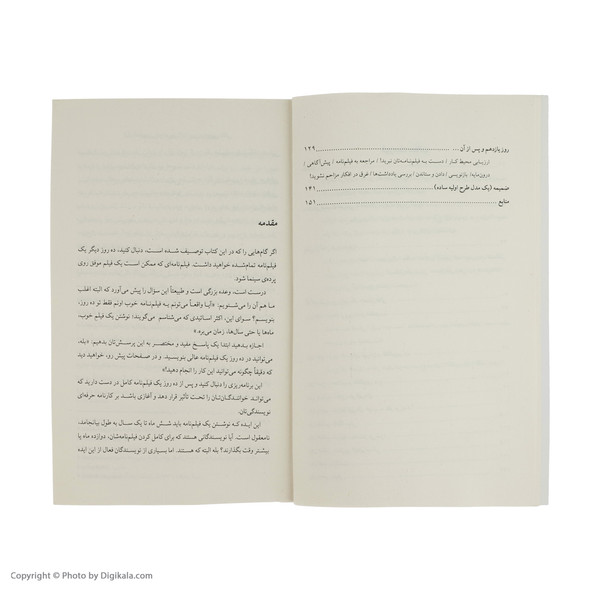 روز یازدهم و پس از آن ... ۱۲۹
ارزیابی محیط کار / دست به فیلم‌نامه‌تان نبرید! / مراجعه به فیلم‌نامه / پیش‌آگاهی /
درون‌مایه / بازنویسی / دادن و ستاندن / بررسی یادداشت‌ها / غرق در افکار مزاحم نشوید!
ضمیمه (یک مدل طرح اولیه ساده) ۱۴۱
منابع ۱۵۱
مقدمه
اگر گام‌هایی را که در این کتاب توصیف شده است، دنبال کنید، ده روز دیگر یک
فیلم‌نامه تمام‌شده خواهید داشت. فیلم‌نامه‌ای که ممکن است یک فیلم موفق روی
پرده‌ی سینما شود.
درست است، وعده بزرگی است و طبیعتاً این سؤال را پیش می‌آورد که البته اغلب
ما هم آن را می‌شنویم: «آیا واقعاً می‌تونم یه فیلم‌نامه خوب اونم فقط تو ده روز،
بنویسم؟ سوای این، اکثر اساتیدی که می‌شناسم می‌گویند: نوشتن یک فیلم خوب،
ماه‌ها یا حتی سال‌ها، زمان می‌بره.»
اجازه بدهید ابتدا یک پاسخ مفید و مختصر به این پرسش‌تان بدهیم: «بله،
می‌توانید در ده روز یک فیلم‌نامه عالی بنویسید. و در صفحات پیش رو، خواهید دید
که دقیقاً چگونه می‌توانید این کار را انجام دهید!»
این برنامه‌ریزی را دنبال کنید و پس از ده روز یک فیلم‌نامه کامل در دست دارید که
می‌تواند خوانندگان‌تان را تحت تأثیر قرار دهد و آغازی باشد بر کارنامه حرفه‌ای
نویسندگی‌تان.
این ایده که نوشتن یک فیلم‌نامه باید شش ماه تا یک سال به طول بیانجامد،
نامعقول است. آیا نویسندگانی هستند که برای کامل کردن فیلم‌نامه‌شان، دوازده ماه یا
بیشتر وقت بگذارند؟ بله البته که هستند. اما بسیاری از نویسندگان فعال از این ایده
Copyright © Photo by Digikala.com